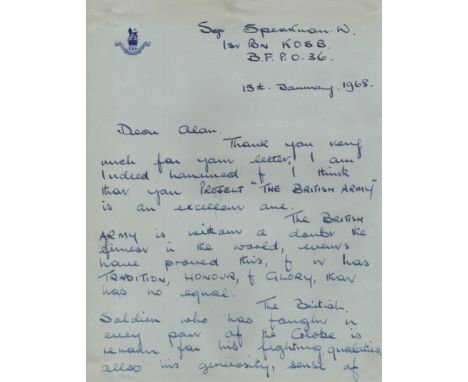 Sgt Speakman. W.
1st Bn K.O.S.B.
B.F.P.O. 36.
15th. January, 1968.
Dear Alan.
Thank you very
much for your letter. I am
Indeed honoured & I think
that you PROJECT "THE BRITISH ARMY"
is an excellent one.
The BRITISH
ARMY is, without a doubt the
finest in the world, events
have proved this, & it has
TRADITION, HONOUR, & GLORY, that
has no equal.
The British.
Soldier who has fought in
every part of the Globe is
renown for his fighting qualities,
allso his generosity, sense of